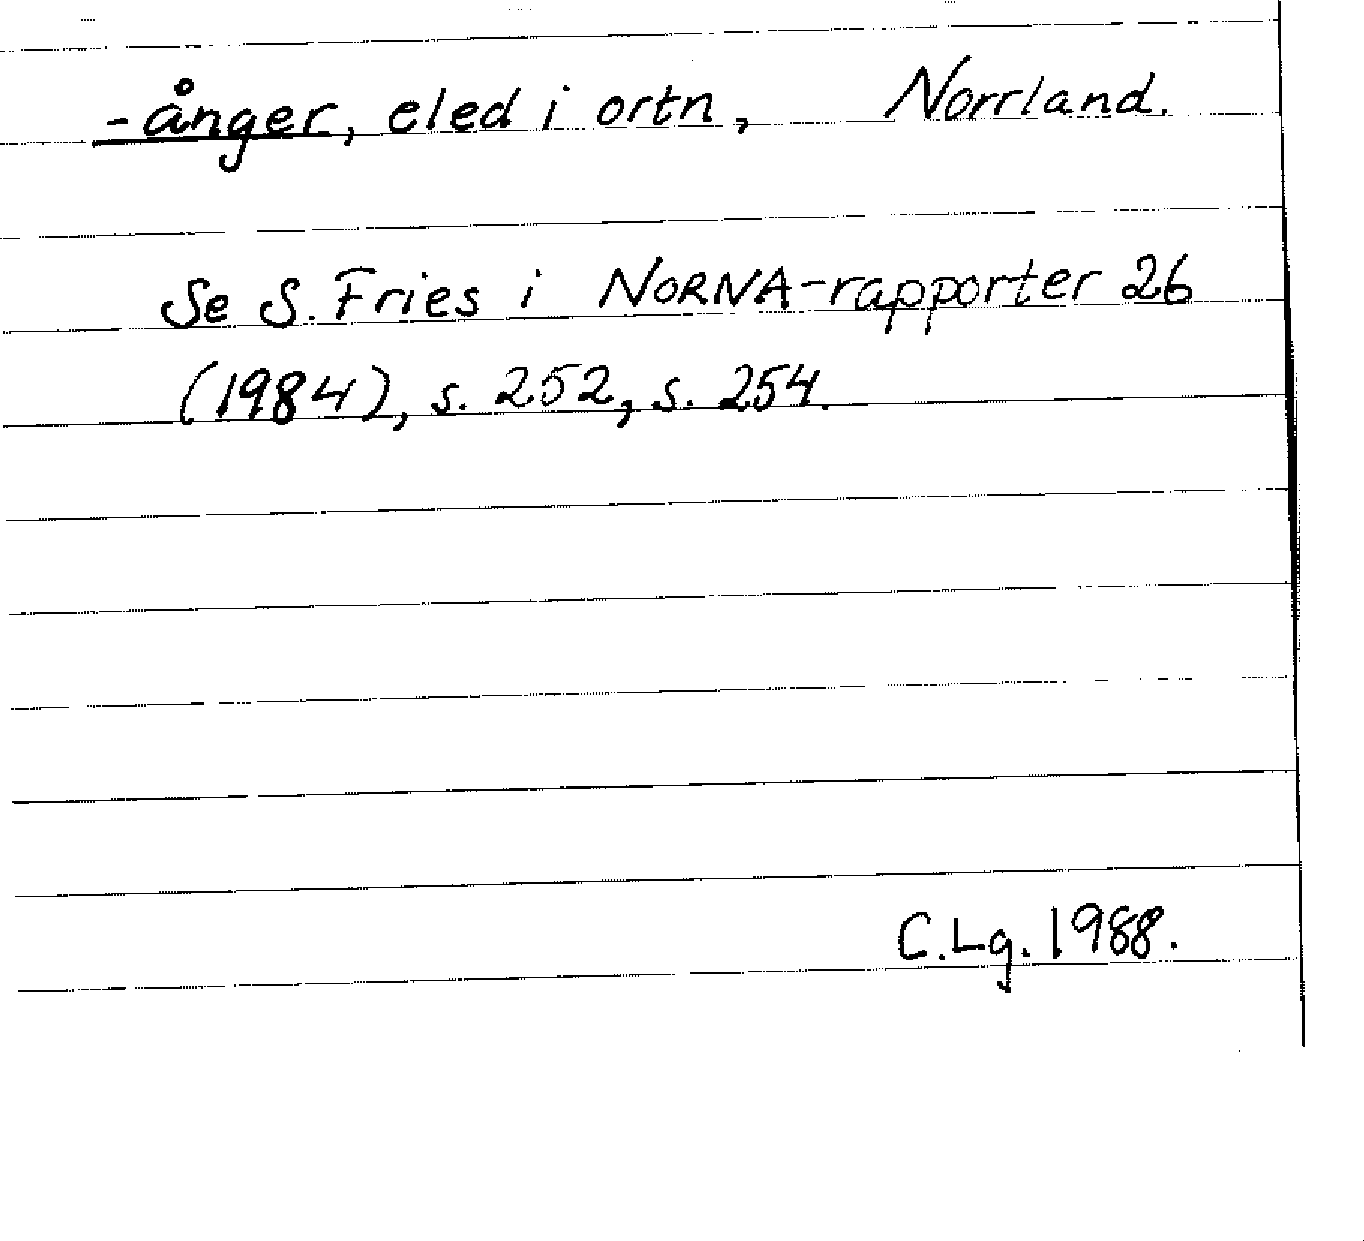 -ånger, eled i ortn, Norrland.
Se S. Fries i NORNA-rapporter 26
(1984), s. 252, s. 254.
C.Lg. 1988.